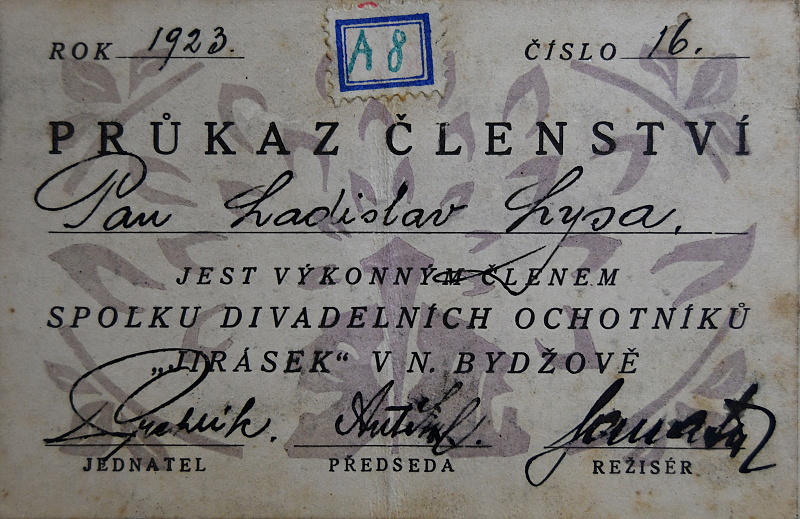 ROK 1923. A8 ČÍSLO 16.
PRŮKAZ ČLENSTVÍ
Pan Ladislav Lysa.
JEST VÝKONNÝM ČLENEM
SPOLKU DIVADELNÍCH OCHOTNÍKŮ
„JIRÁSEK“ V N. BYDŽOVĚ
JEDNATEL PŘEDSEDA REŽISÉR